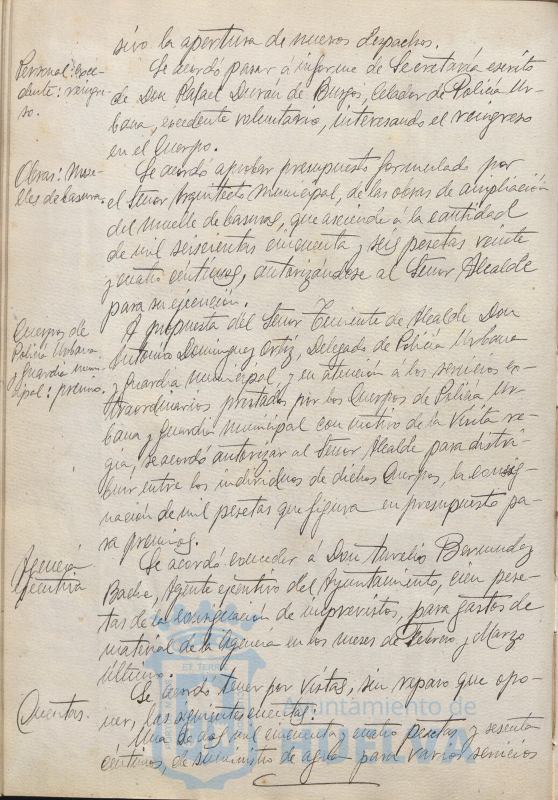 sivo la apertura de nuevos despachos.
Personal: exce-
dente: reingre-
so.
Se acordó pasar á informe de Secretaría escrito
de Don Rafael Durán de Burgos, Celador de Policía Ur-
bana, excedente voluntario, interesando el reingreso
en el Cuerpo.
Obras: Mue-
lles de basuras.
Se acordó aprobar presupuesto formulado por
el Señor Arquitecto municipal, de las obras de ampliación
del muelle de basuras, que asciende á la cantidad
de mil seiscientas cincuenta y seis pesetas veinte
y cuatro céntimos, autorizándose al Señor Alcalde
para su ejecución.
Cuerpos de
Policía Urbana
y guardia muni-
cipal: premio.
A propuesta del Señor Teniente de Alcalde Don
Antonio Dominguez Ortiz, Delegado de Policía Urbana
y Guardia municipal, y en atención a los servicios ex-
traordinarios prestados por los Cuerpos de Policía Ur-
bana y Guardia municipal con motivo de la visita re-
gia, se acordó autorizar al Señor Alcalde para distri-
buir entre los individuos de dichos Cuerpos, la consig-
nación de mil pesetas que figura en presupuesto pa-
ra premios.
Agencia
ejecutiva
Se acordó conceder á Don Aurelio Bermudez
Agente ejecutivo del Ayuntamiento, cien pese-
tas de la consignación de imprevistos, para gastos de
material de la Agencia en los meses de Febrero y Marzo
último.
Cuentas.
Se acordó tener por vistas, sin reparo que opo-
ner, las siguientes cuentas:
Una de mil cincuenta y cuatro pesetas y sesenta
céntimos, de suministro de agua para varios servicios
ET TERR
Ayuntamiento de
HUELVA